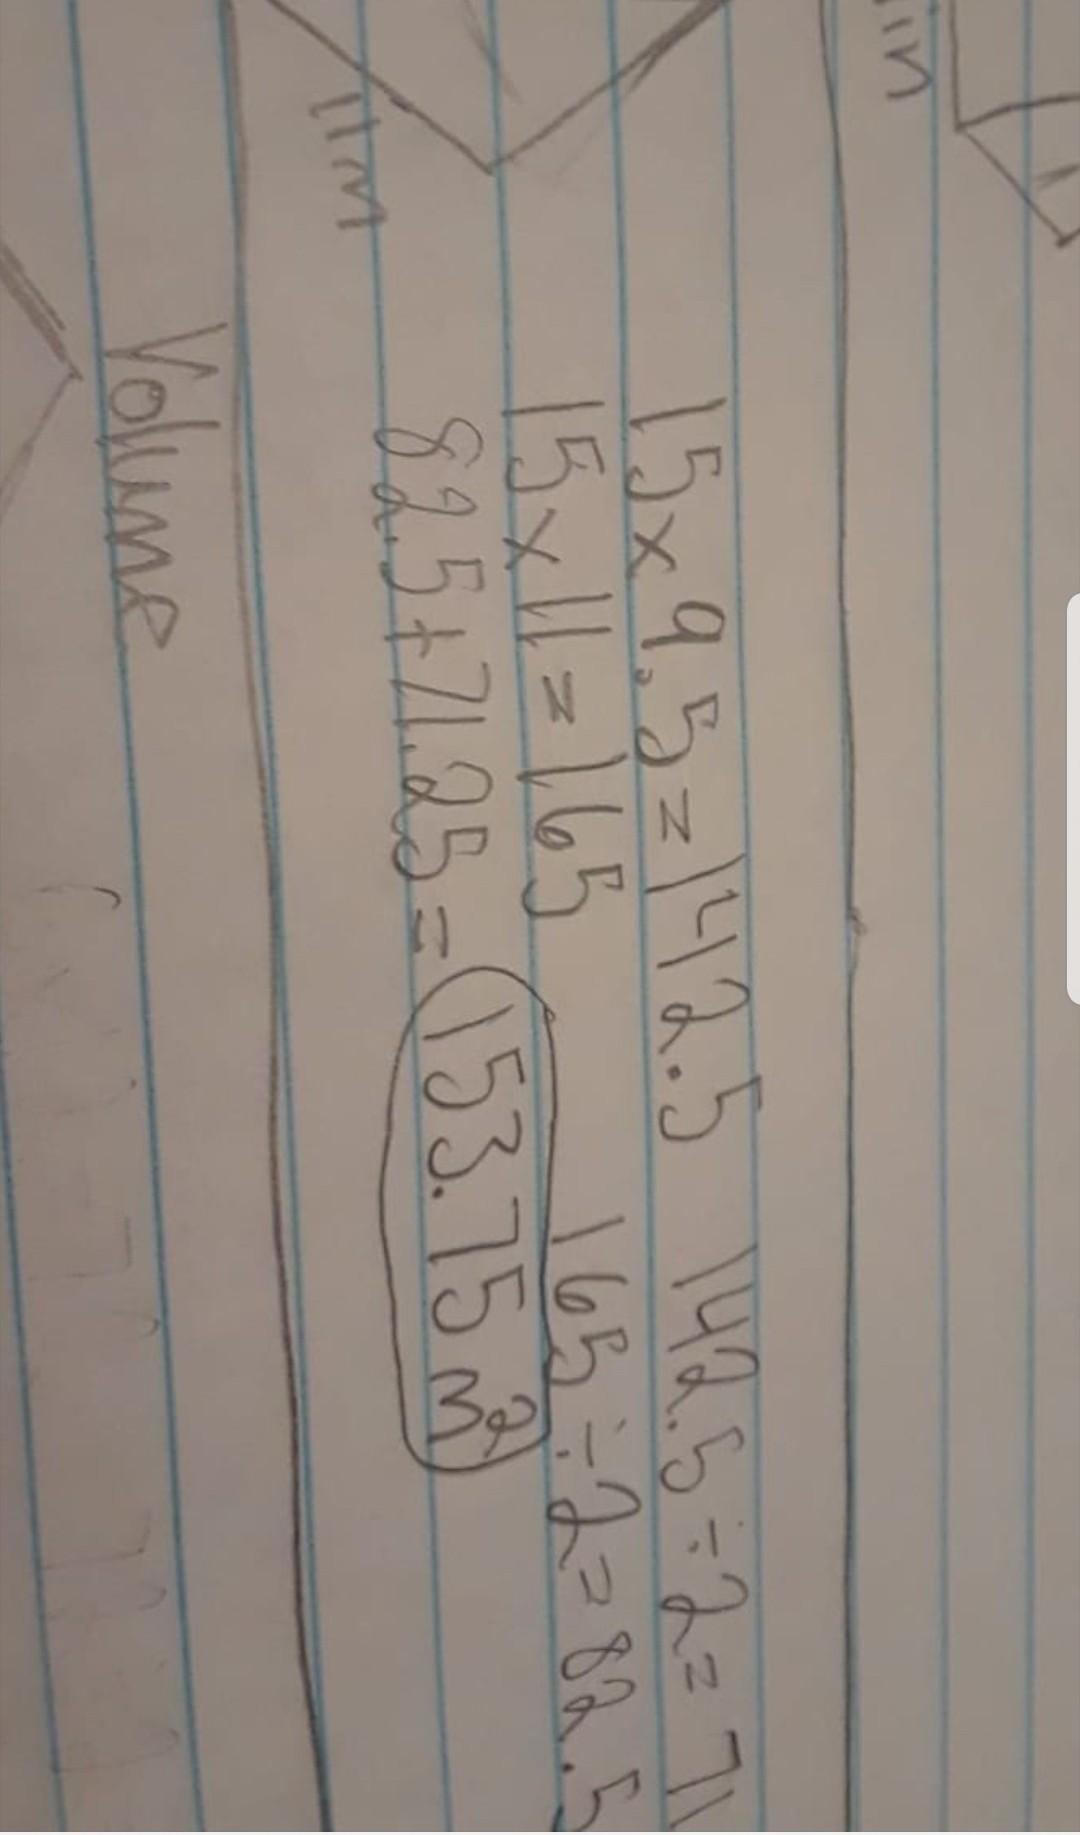 in
15x9.5=142.5 142.5÷2=71
15x11=165 165÷2=82.5
11m
82.5+71.25=153.75m²
Volume